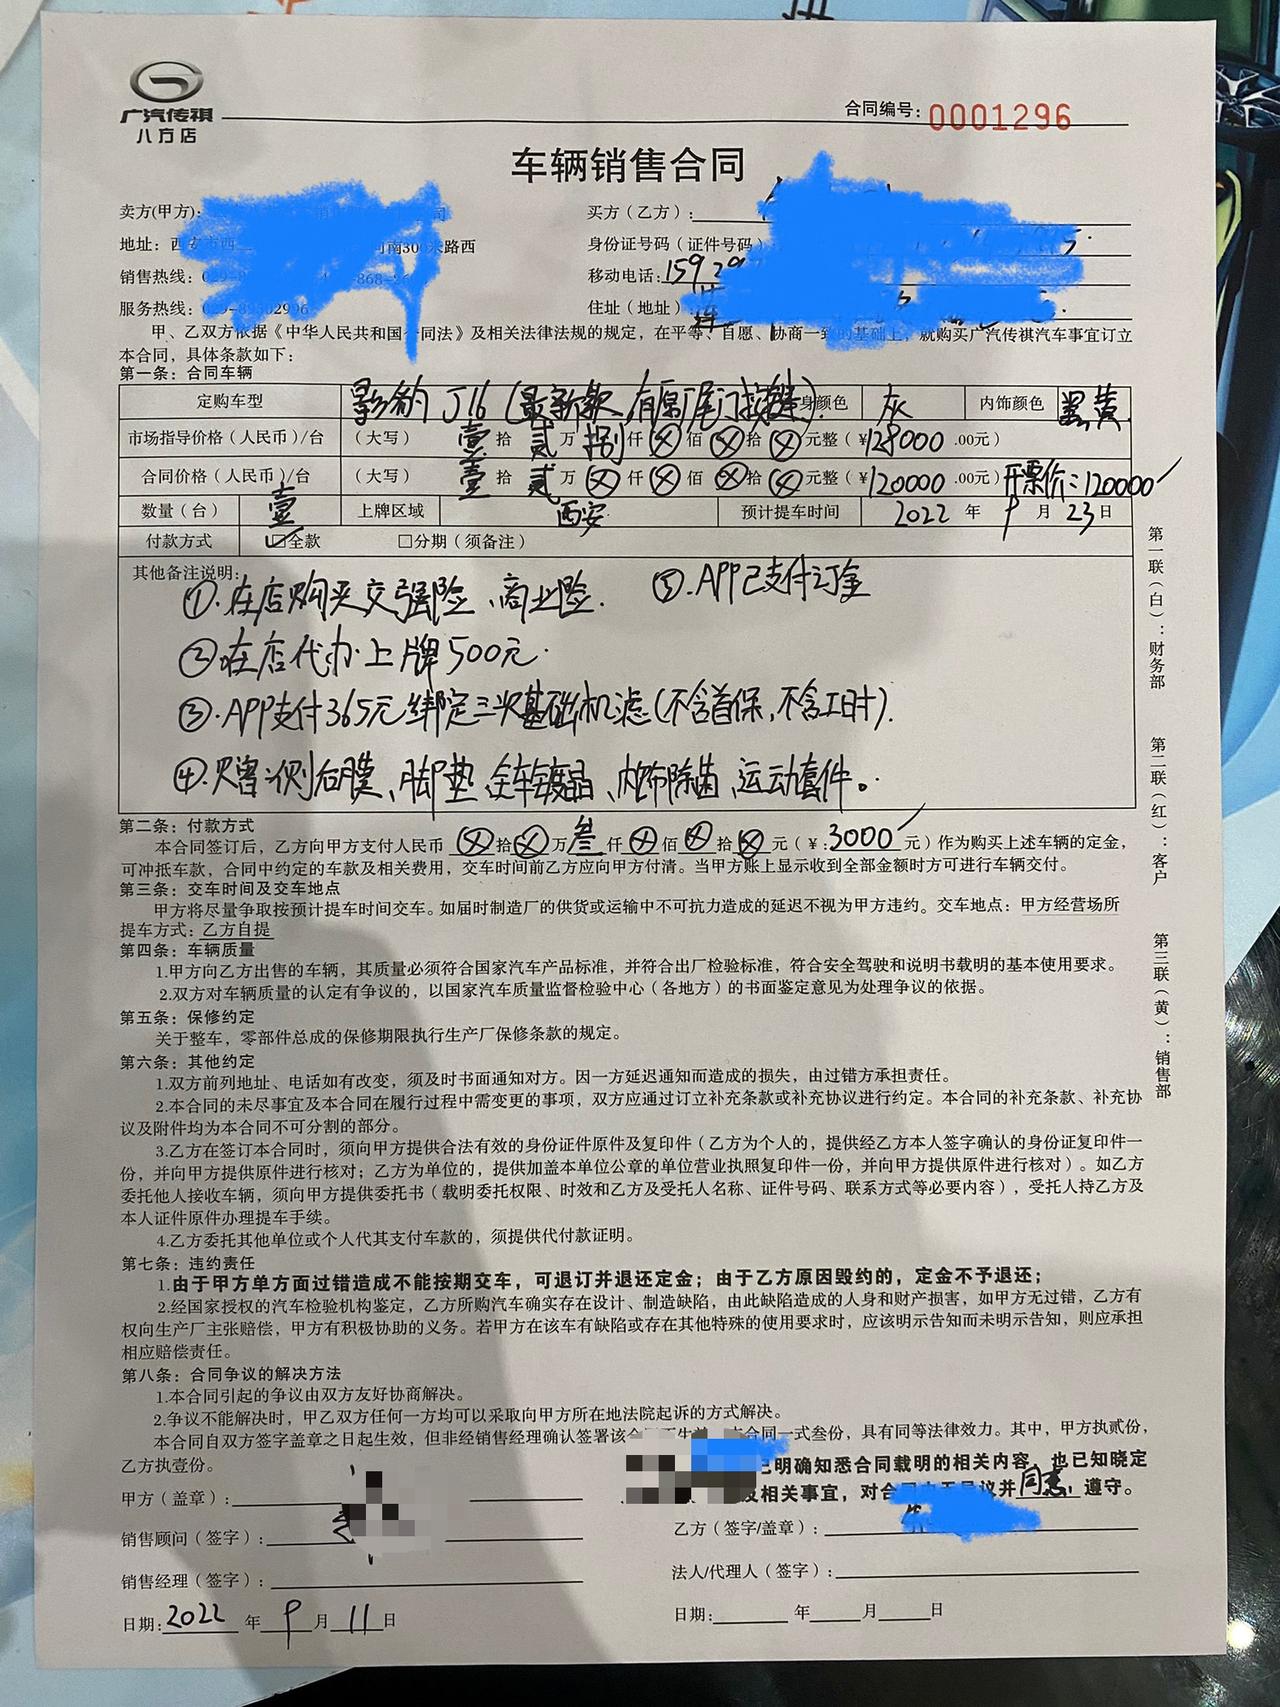 广汽传祺
八方店
合同编号：0001296
车辆销售合同
卖方(甲方)：
买方（乙方）：
地址：西安市西 河南300米路西
身份证号码（证件号码）
销售热线：029-8 -868-8
移动电话：159 29
服务热线：029-89302996
住址（地址）
甲、乙双方依据《中华人民共和国合同法》及相关法律法规的规定，在平等、自愿、协商一致的基础上，就购买广汽传祺汽车事宜订立
本合同，具体条款如下：
第一条：合同车辆
定购车型 影豹 J16（最新款，有原厂尾门按键） 身颜色 灰 内饰颜色 黑黄
市场指导价格（人民币）/台 （大写） 壹拾贰万捌仟⊗佰⊗拾⊗元整（¥128000.00元）
合同价格（人民币）/台 （大写） 壹拾贰万⊗仟⊗佰⊗拾⊗元整（¥120000.00元）开票价：120000
数量（台） 壹 上牌区域 西安 预计提车时间 2022年9月23日
付款方式 ☑全款 □分期（须备注）
其他备注说明：
①.在店购买交强险、商业险. ⑤.APP已支付订金
②在店代办上牌500元.
③.APP支付365元绑定三次基础机滤（不含首保，不含工时）.
④.贝富：侧后膜、脚垫、全车镀晶、内饰除菌、运动套件。
第二条：付款方式
本合同签订后，乙方向甲方支付人民币⊗拾⊗万叁仟⊗佰⊗拾⊗元（¥：3000元）作为购买上述车辆的定金，
可冲抵车款，合同中约定的车款及相关费用，交车时间前乙方应向甲方付清。当甲方账上显示收到全部金额时方可进行车辆交付。
第三条：交车时间及交车地点
甲方将尽量争取按预计提车时间交车。如届时制造厂的供货或运输中不可抗力造成的延迟不视为甲方违约。交车地点：甲方经营场所
提车方式：乙方自提
第四条：车辆质量
1.甲方向乙方出售的车辆，其质量必须符合国家汽车产品标准，并符合出厂检验标准，符合安全驾驶和说明书载明的基本使用要求。
2.双方对车辆质量的认定有争议的，以国家汽车质量监督检验中心（各地方）的书面鉴定意见为处理争议的依据。
第五条：保修约定
关于整车，零部件总成的保修期限执行生产厂保修条款的规定。
第六条：其他约定
1.双方前列地址、电话如有改变，须及时书面通知对方。因一方延迟通知而造成的损失，由过错方承担责任。
2.本合同的未尽事宜及本合同在履行过程中需变更的事项，双方应通过订立补充条款或补充协议进行约定。本合同的补充条款、补充协
议及附件均为本合同不可分割的部分。
3.乙方在签订本合同时，须向甲方提供合法有效的身份证件原件及复印件（乙方为个人的，提供经乙方本人签字确认的身份证复印件一
份，并向甲方提供原件进行核对；乙方为单位的，提供加盖本单位公章的单位营业执照复印件一份，并向甲方提供原件进行核对）。如乙方
委托他人接收车辆，须向甲方提供委托书（载明委托权限、时效和乙方及受托人名称、证件号码、联系方式等必要内容），受托人持乙方及
本人证件原件办理提车手续。
4.乙方委托其他单位或个人代其支付车款的，须提供代付款证明。
第七条：违约责任
1.由于甲方单方面过错造成不能按期交车，可退订并退还定金；由于乙方原因毁约的，定金不予退还；
2.经国家授权的汽车检验机构鉴定，乙方所购汽车确实存在设计、制造缺陷，由此缺陷造成的人身和财产损害，如甲方无过错，乙方有
权向生产厂主张赔偿，甲方有积极协助的义务。若甲方在该车有缺陷或存在其他特殊的使用要求时，应该明示告知而未明示告知，则应承担
相应赔偿责任。
第八条：合同争议的解决方法
1.本合同引起的争议由双方友好协商解决。
2.争议不能解决时，甲乙双方任何一方均可以采取向甲方所在地法院起诉的方式解决。
本合同自双方签字盖章之日起生效，但非经销售经理确认签署该合 不生效 本合同一式叁份，具有同等法律效力。其中，甲方执贰份，
乙方执壹份。
已明确知悉合同载明的相关内容，也已知晓定
及相关事宜，对合同 异议并同意，遵守。
甲方（盖章）：
销售顾问（签字）：
乙方（签字/盖章）：
销售经理（签字）：
法人/代理人（签字）：
日期：2022年9月11日
日期： 年 月 日
第一联（白）：财务部
第二联（红）：客户
第三联（黄）：销售部